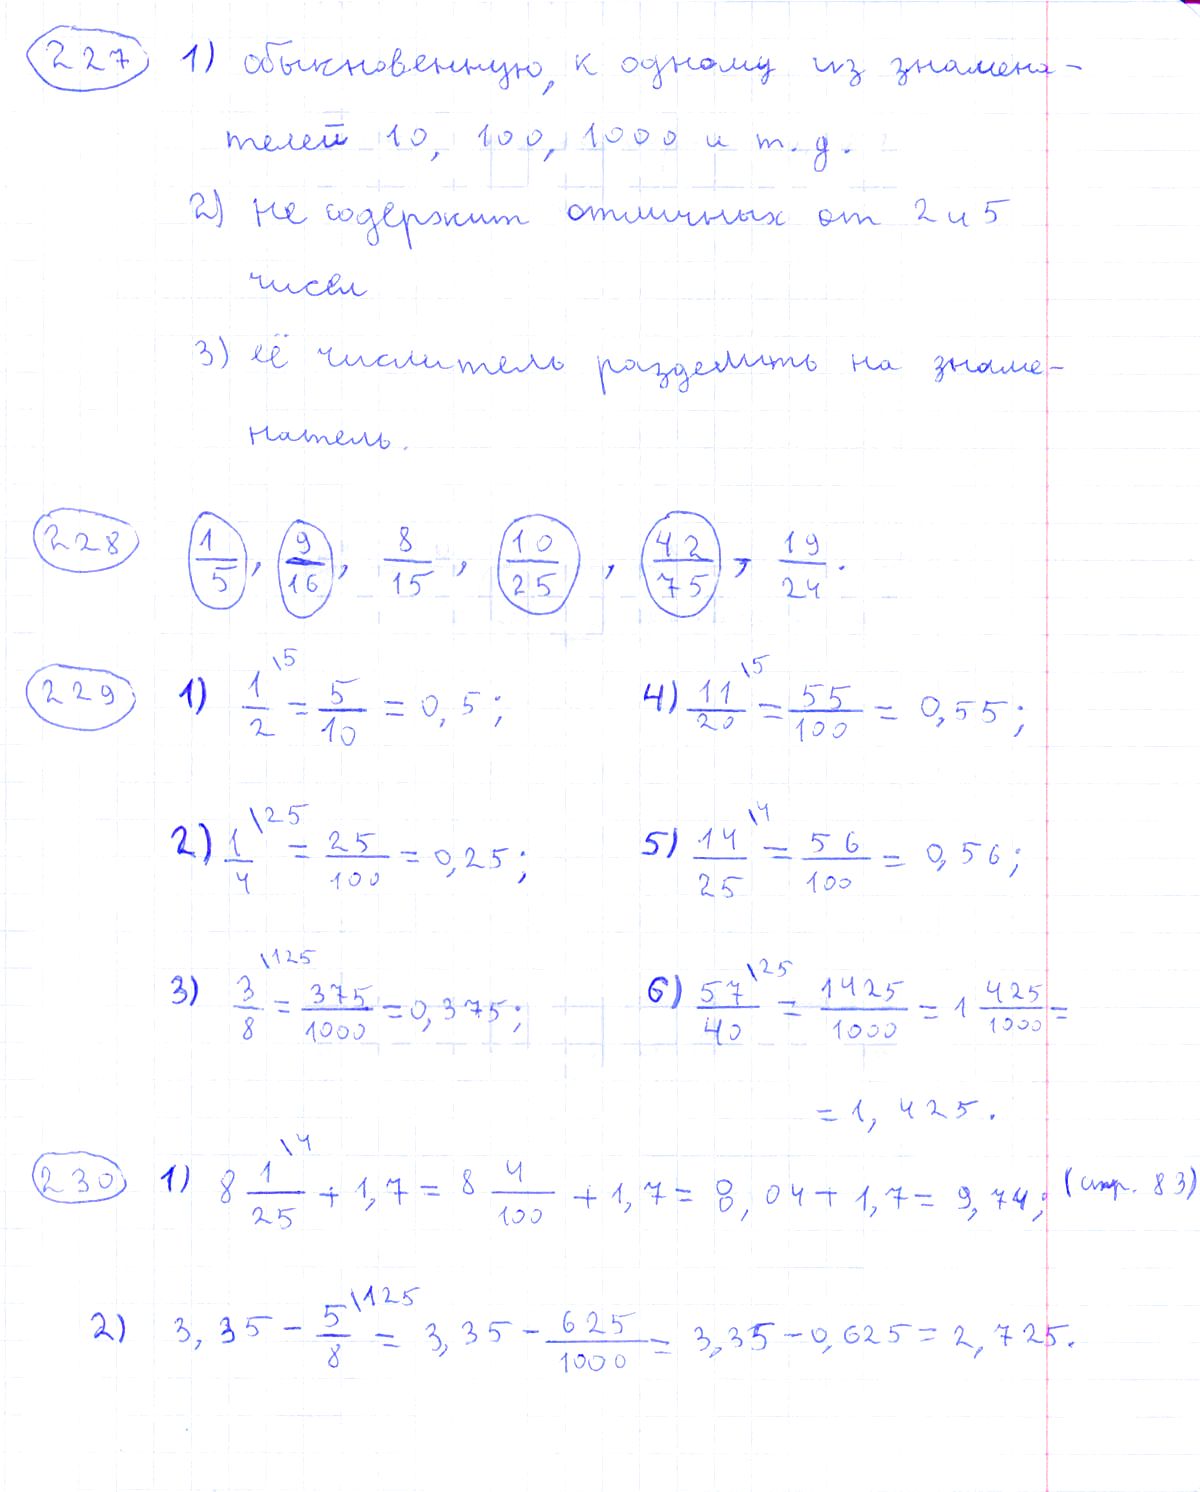 227 1) обыкновенную, к одному из знамена-
телей 10, 100, 1000 и т. д.
2) не содержит отличных от 2 и 5
чисел
3) её числитель разделить на знаме-
натель.
228 1/5, 9/16, 8/15, 10/25, 42/75, 19/24.
229 1) 1/2 \5 = 5/10 = 0,5; 4) 11/20 \5 = 55/100 = 0,55;
2) 1/4 \25 = 25/100 = 0,25; 5) 14/25 \4 = 56/100 = 0,56;
3) 3/8 \125 = 375/1000 = 0,375; 6) 57/40 \25 = 1425/1000 = 1 425/1000 =
= 1,425.
230 1) 8 1/25 \4 + 1,7 = 8 4/100 + 1,7 = 8,04 + 1,7 = 9,74; (стр. 83)
2) 3,35 - 5/8 \125 = 3,35 - 625/1000 = 3,35 - 0,625 = 2,725.